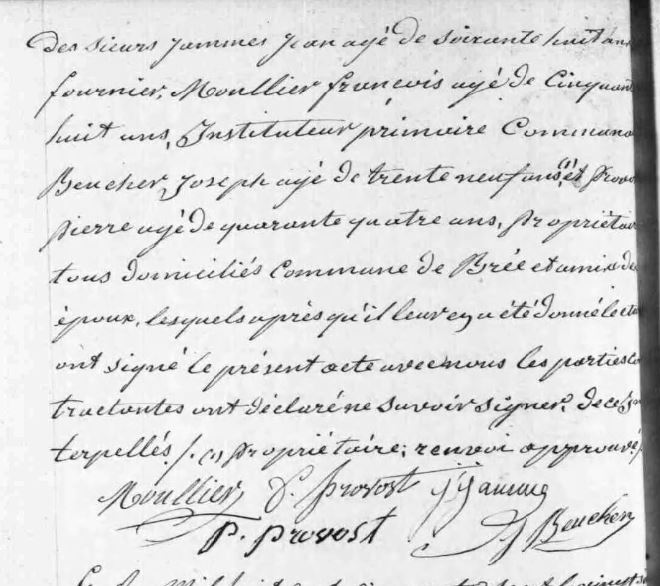 Des sieurs Jammes Jean agé de soixante huit ans
fournier, Moullier françois agé de Cinquant
huit ans, Instituteur primaire Communa
Beucher Joseph agé de trente neuf ans (1) et Provos
pierre agé de quarante quatre ans, propriétai
tous domiciliés Commune de Brée et amis des
époux, lesquels après qu'il leur en a été donné lectu
ont signé le présent acte avec nous les parties co
tractantes ont déclaré ne savoir signer, de ce In
terpellés /. (1) propriétaire; renvoi approuvé /.
Moullier P. Provost J Jamme
P. Provost J Beucher